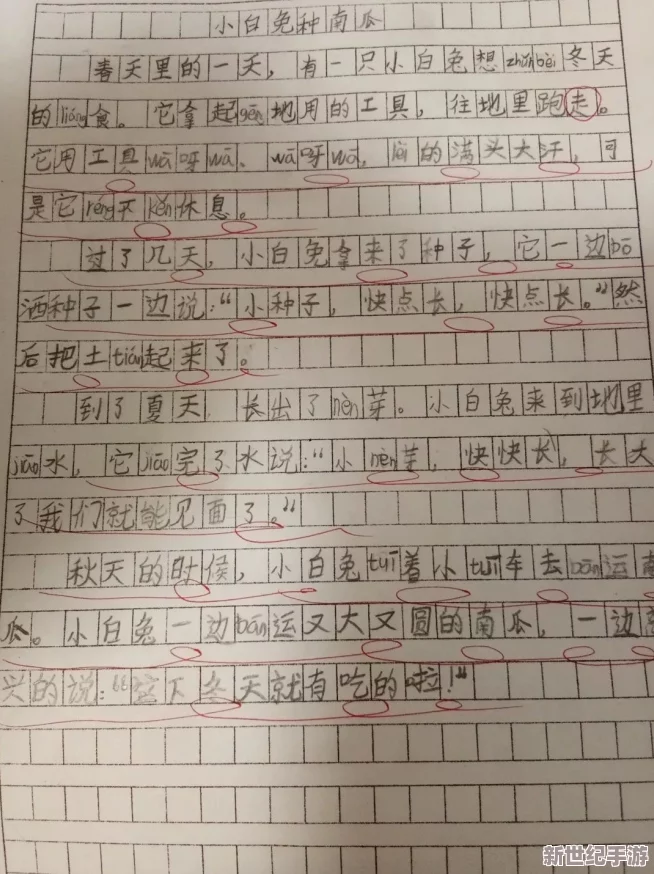 小白兔种南瓜
春天里的一天，有一只小白兔想zhǔnbèi冬天
的liáng食。它拿起gēng地用的工具，往地里跑走。
它用工具wā呀wā、wā呀wā，lèi的满头大汗，可
是它réng不kěn休息。
过了几天，小白兔拿来了种子，它一边bō
洒种子一边说：“小种子，快点长，快点长。”然
后把土tián起来了。
到了夏天 长出了nèn芽。小白兔来到地里
jiāo水，它jiāo完了水说：“小nèn芽，快快长，长大
了我们就能见面了。“
秋天的时候，小白兔tuī着小tuī车去bān运南
瓜。小白兔一边bān运又大又圆的南瓜，一边高
兴的说：“这下冬天就有吃的啦！“
新世纪手游